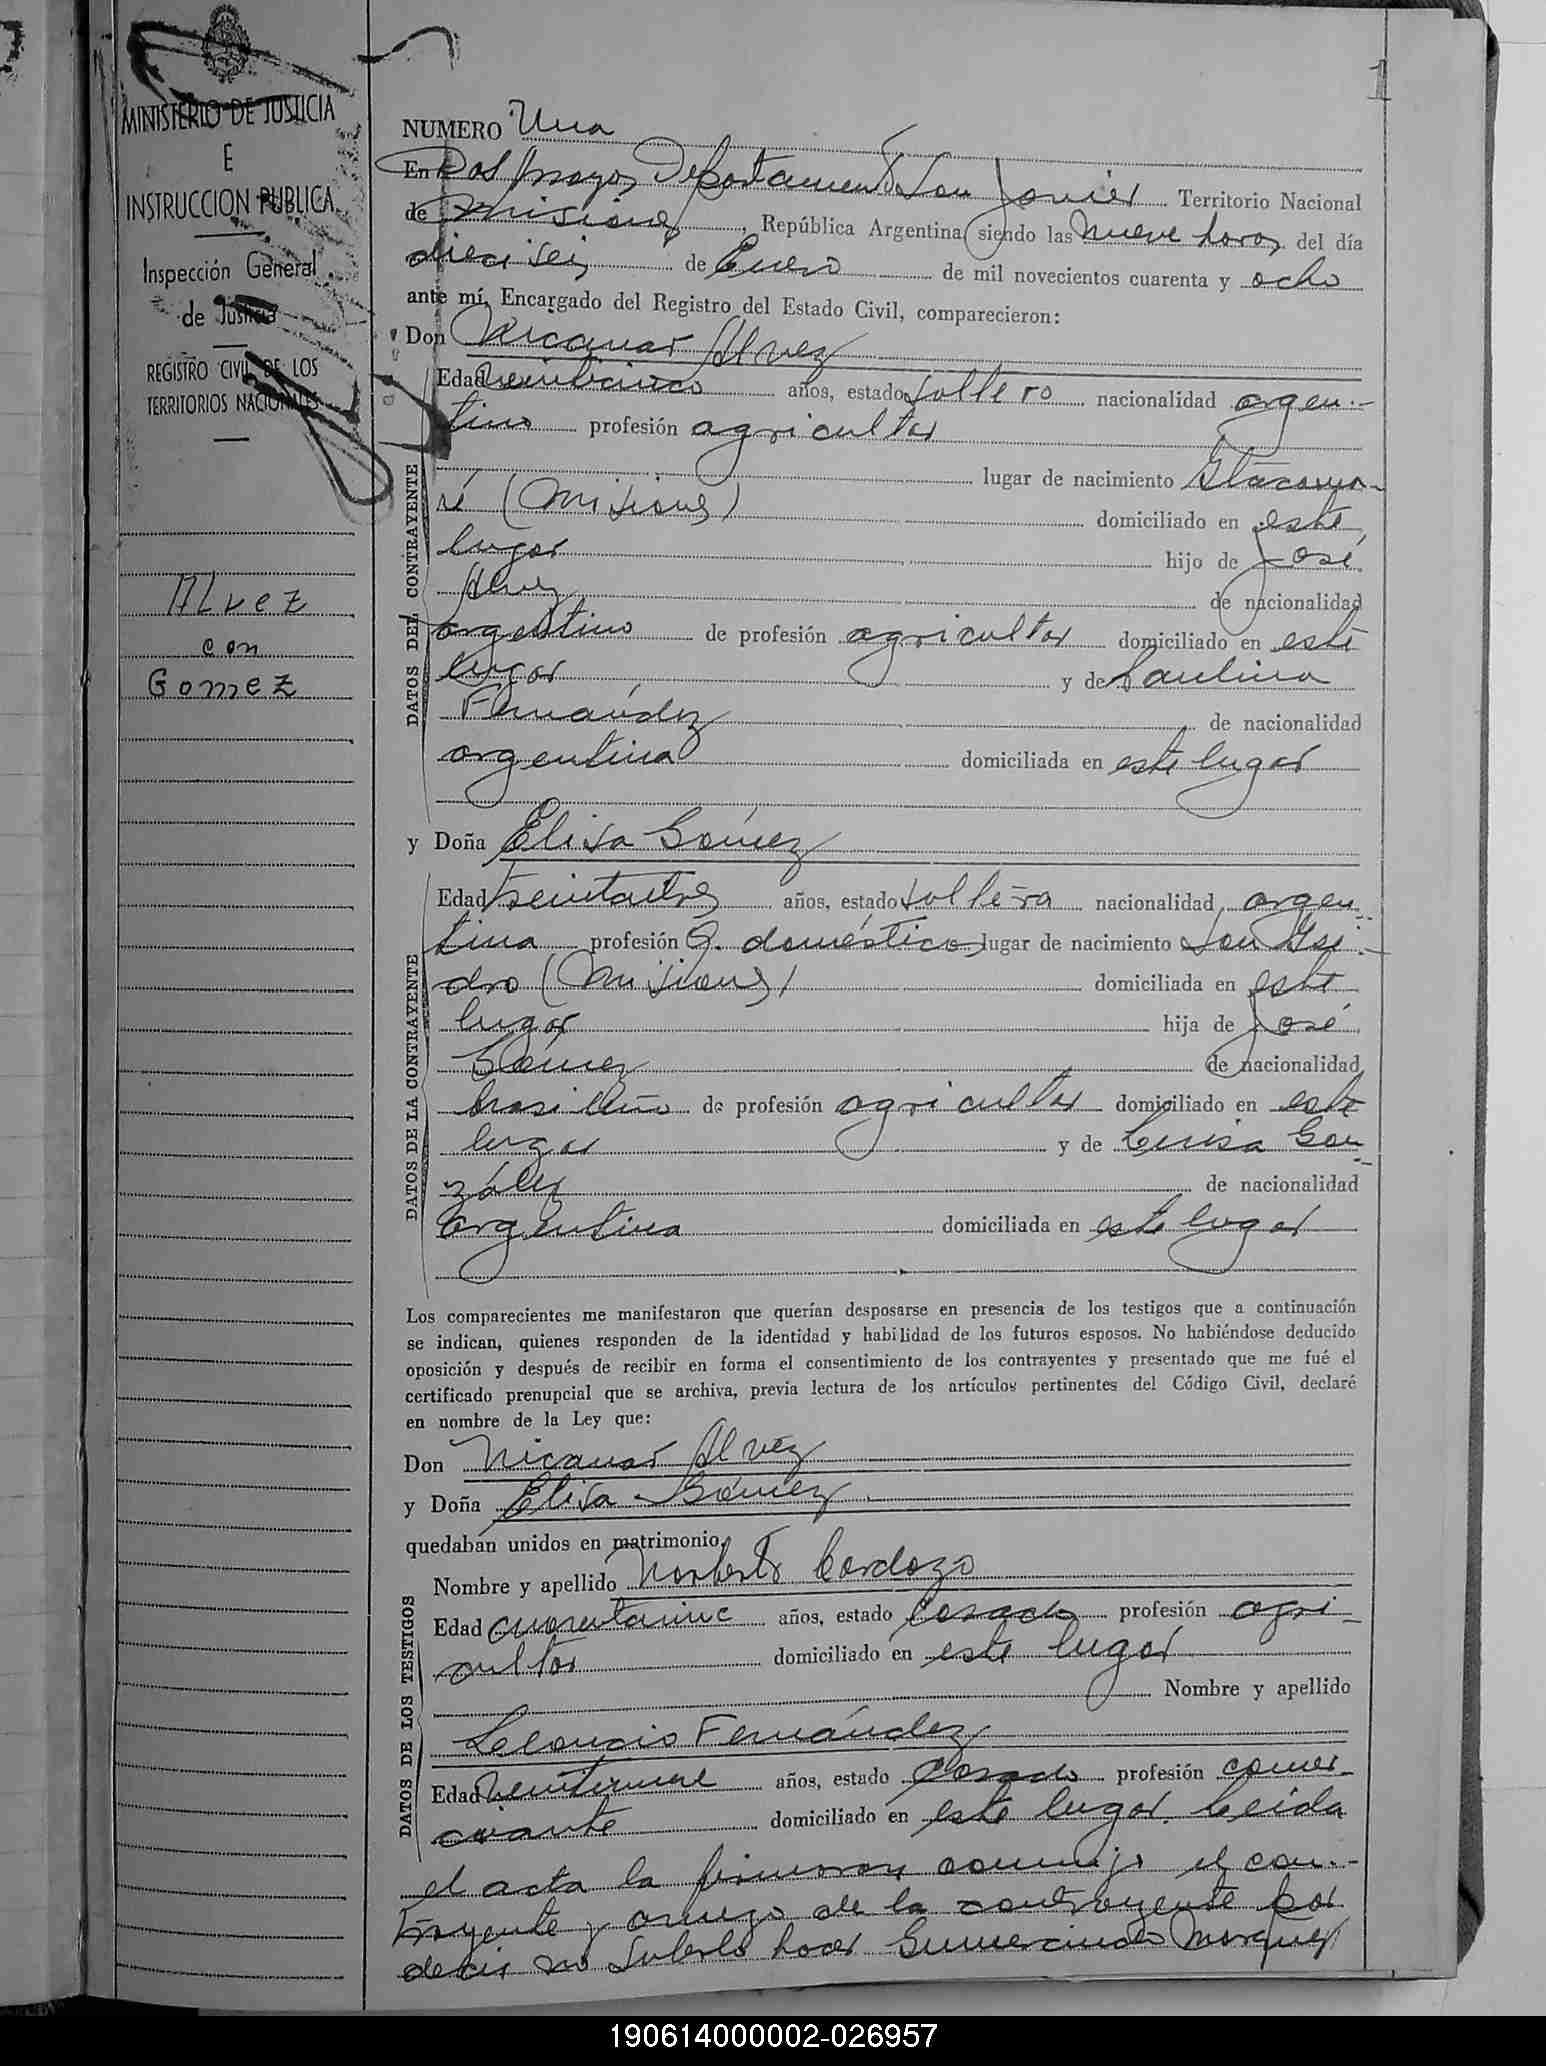 1
MINISTERIO DE JUSTICIA
E
INSTRUCCION PUBLICA
Inspección General
de Justicia
REGISTRO CIVIL DE LOS
TERRITORIOS NACIONALES
ALvez
con
Gomez
NUMERO Una
En Dos Mayos, Departamento San Javier Territorio Nacional
de Misiones, República Argentina siendo las nueve horas del día
dieciseis de Enero de mil novecientos cuarenta y ocho
ante mí, Encargado del Registro del Estado Civil, comparecieron:
Don Nicanor Alvez
DATOS DEL CONTRAYENTE
Edad veinticinco años, estado soltero nacionalidad argen-
tino profesión agricultor
lugar de nacimiento Itacarua-
ré (Misiones) domiciliado en este
lugar hijo de José
Alvez de nacionalidad
argentino de profesión agricultor domiciliado en este
lugar y de Paulina
Fernández de nacionalidad
argentina domiciliada en este lugar
y Doña Elisa Gómez
DATOS DE LA CONTRAYENTE
Edad treintaitres años, estado soltera nacionalidad argen
tina profesión Q. domésticos lugar de nacimiento San Isi-
dro (Misiones) domiciliada en este
lugar hija de José
Gómez de nacionalidad
brasilleño de profesión agricultor domiciliado en este
lugar y de Luisa Gon
zález de nacionalidad
argentina domiciliada en este lugar
Los comparecientes me manifestaron que querían desposarse en presencia de los testigos que a continuación
se indican, quienes responden de la identidad y habilidad de los futuros esposos. No habiéndose deducido
oposición y después de recibir en forma el consentimiento de los contrayentes y presentado que me fué el
certificado prenupcial que se archiva, previa lectura de los artículos pertinentes del Código Civil, declaré
en nombre de la Ley que:
Don Nicanor Alvez
y Doña Elisa Gómez
quedaban unidos en matrimonio.
DATOS DE LOS TESTIGOS
Nombre y apellido Norberto Cardozo
Edad años, estado Casado profesión agri-
cultor domiciliado en este lugar
Nombre y apellido
Fernández
Edad veintinueve años, estado Casado profesión comer-
ciante domiciliado en este lugar. Leida
el acta la firmaron conmigo el con-
trayente y a ruego de la contrayente por
decir no saberlo hacer Gumercindo Marquez
190614000002-026957